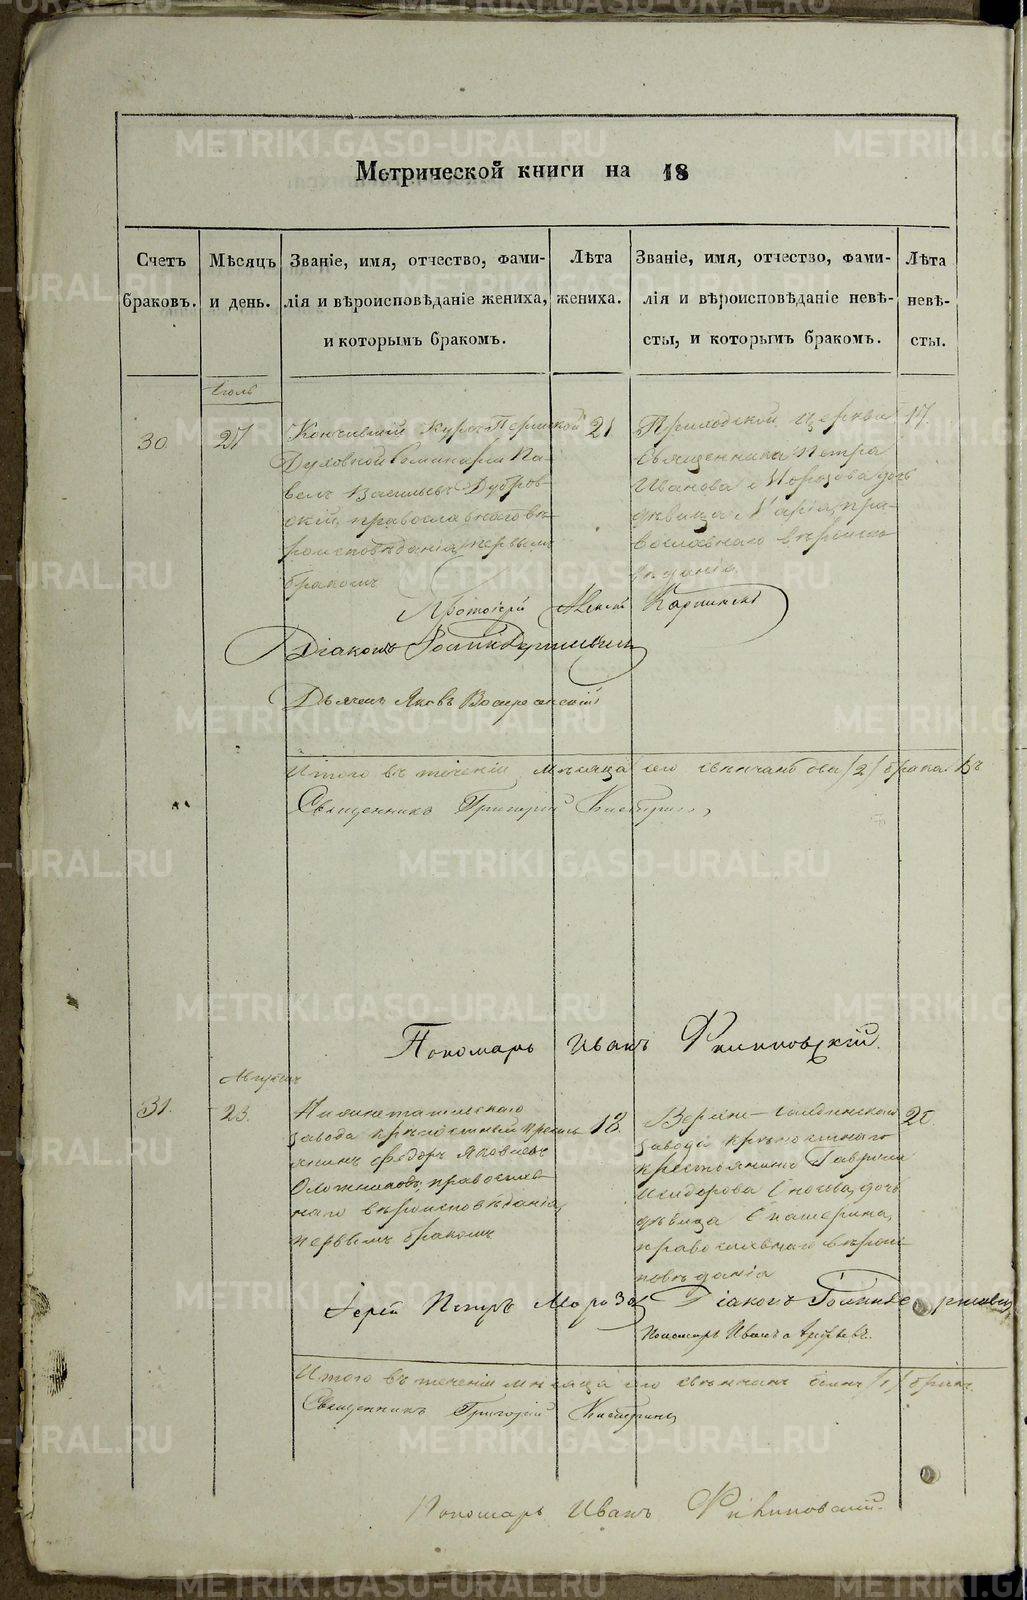 Метрической книги на 18
Счетъ браковъ.
Мѣсяцъ и день.
Званіе, имя, отчество, фами-
лія и вѣроисповѣданіе жениха,
и которымъ бракомъ.
Лѣта жениха.
Званіе, имя, отчество, фами-
лія и вѣроисповѣданіе невѣ-
сты, и которымъ бракомъ.
Лѣта невѣ-
сты.
Іюль
30
27
Кончившій курсъ Пермской
Духовной Семинаріи Па-
велъ Васильевъ Дубров-
скій, православнаго вѣ-
роисповѣданія, первымъ
бракомъ
21
Приходской церкви
Священника Петра
Иванова Морозова дочь
дѣвица Марія, пра-
вославнаго вѣроиспо-
вѣданія
17.
Протоіерей Алексій Карпинскій
Діаконъ
Дьячекъ Яковъ Воскресенскій
Итого въ теченіи мѣсяца сего вѣнчано два /2/ брака.
Священникъ Григорій
Пономарь Иванъ Филиповскій.
Августъ
31.
23.
Нижнетагильскаго
завода крѣпостный кресть-
янинъ Ѳедоръ Яковлевъ
православ-
наго вѣроисповѣданія,
первымъ бракомъ
18
Верхне-Салдинскаго
завода крѣпостнаго
крестьянина Гаврила
Исидорова дочь
дѣвица Екатерина,
православнаго вѣроис-
повѣданія
20.
Іерей Петръ Морозовъ Діаконъ
Пономарь Иванъ
Итого въ теченіи мѣсяца сего вѣнчанъ одинъ /1/ бракъ.
Священникъ Григорій
Пономарь Иванъ Филиповскій.
METRIKI.GASO-URAL.RU